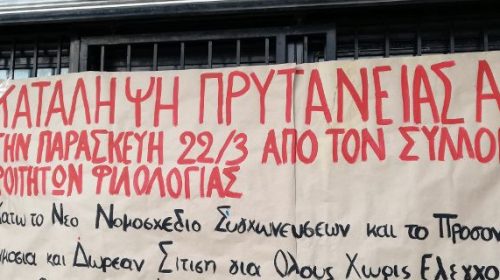 ΚΑΤΑΛΗΨΗ ΠΡΥΤΑΝΕΙΑΣ Α
ΤΗΝ ΠΑΡΑΣΚΕΥΗ 22/3 ΑΠΟ ΤΟΝ ΣΥΛΛΟ
ΦΟΙΤΗΤΩΝ ΦΙΛΟΛΟΓΙΑΣ
Κατω το Νεο Νομοσχεδιο Συγχωνευσεων και το Προσον
και Δωρεαν Σιτιση για Ολους Χωρις Ελεγχο